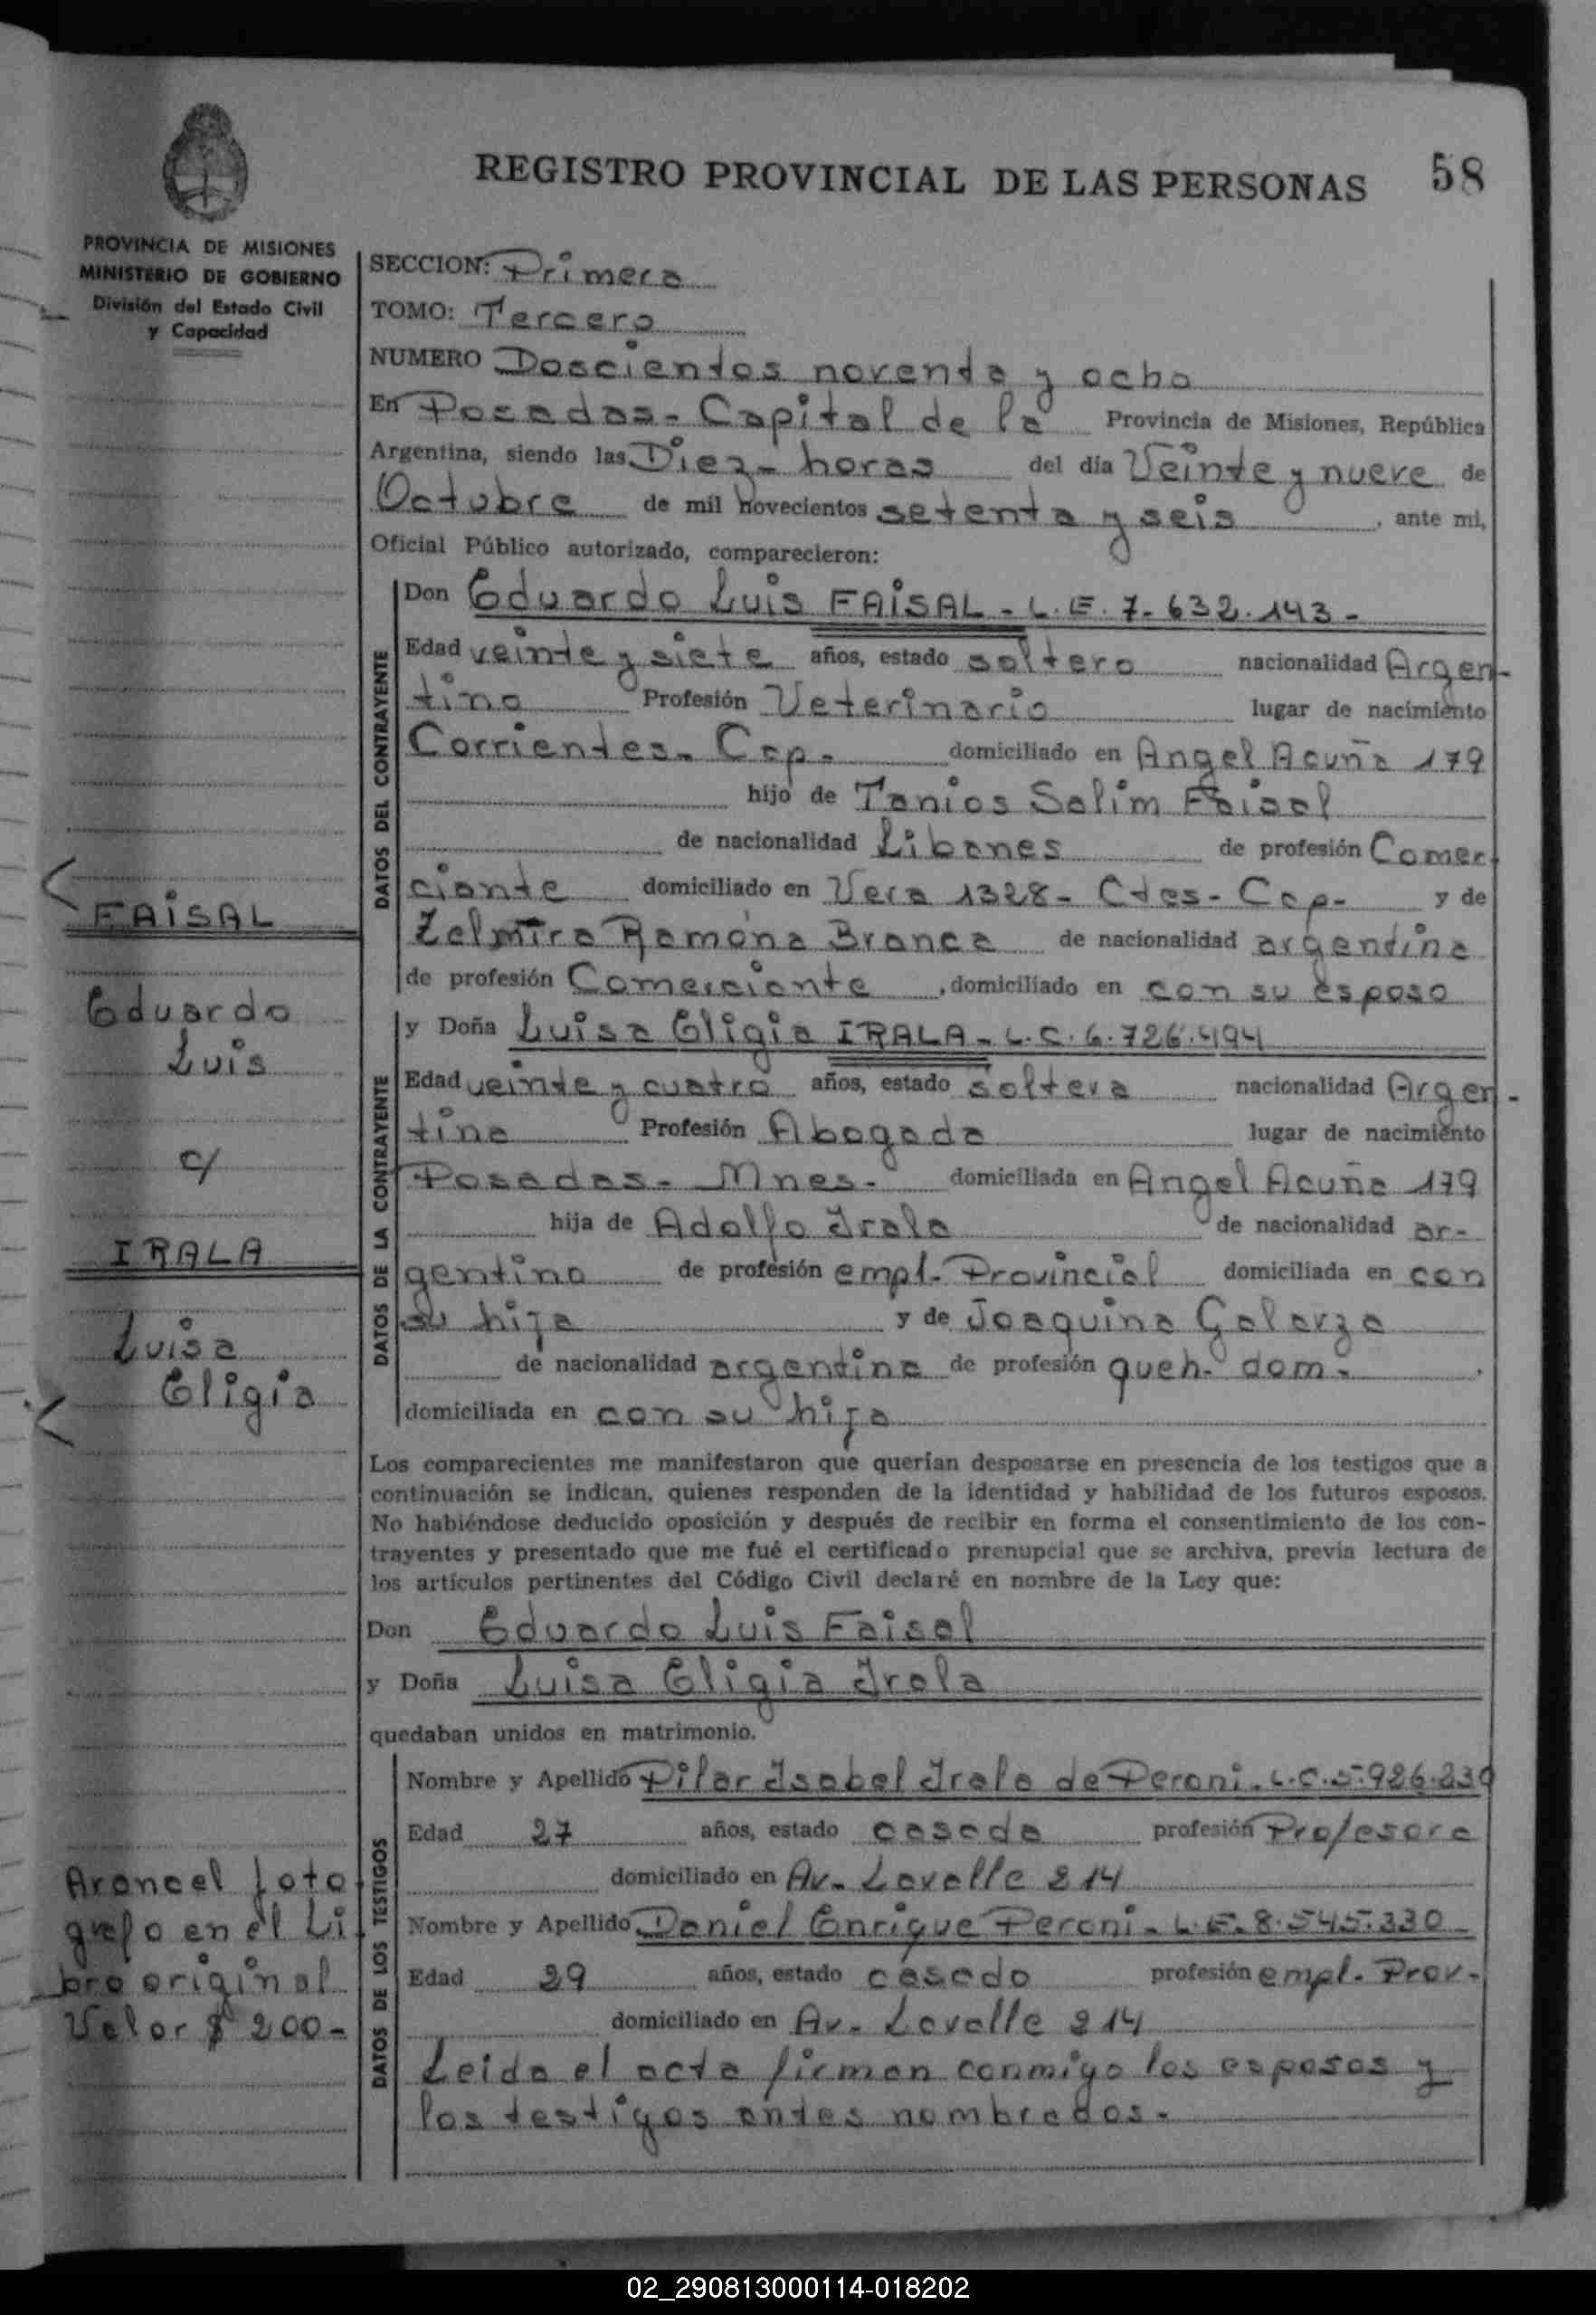 REGISTRO PROVINCIAL DE LAS PERSONAS 58
PROVINCIA DE MISIONES
MINISTERIO DE GOBIERNO
División del Estado Civil
y Capacidad
SECCION: Primera
TOMO: Tercero
NUMERO Doscientos noventa y ocho
En Posadas - Capital de la Provincia de Misiones, República
Argentina, siendo las Diez - horas del día Veinte y nueve de
Octubre de mil novecientos setenta y seis, ante mi,
Oficial Público autorizado, comparecieron:
DATOS DEL CONTRAYENTE
Don Eduardo Luis FAISAL - L.E. 7.632.143 -
Edad veinte y siete años, estado soltero nacionalidad Argen-
tino Profesión Veterinario lugar de nacimiento
Corrientes - Cap. domiciliado en Angel Acuña 179
hijo de Tanios Salim Faisal
de nacionalidad Libanes de profesión Comer-
ciante domiciliado en Vera 1328 - Ctes - Cap - y de
Zelmira Ramona Branca de nacionalidad argentina
de profesión Comerciante, domiciliado en con su esposo
DATOS DE LA CONTRAYENTE
y Doña Luisa Eligia IRALA - L.C. 6.726.494
Edad veinte y cuatro años, estado soltera nacionalidad Argen-
tina Profesión Abogada lugar de nacimiento
Posadas - Mnes - domiciliada en Angel Acuña 179
hija de Adolfo Irala de nacionalidad ar-
gentino de profesión empl. Provincial domiciliada en con
su hija y de Joaquina Galarza
de nacionalidad argentina de profesión queh. dom.
domiciliada en con su hija
Los comparecientes me manifestaron que querían desposarse en presencia de los testigos que a
continuación se indican, quienes responden de la identidad y habilidad de los futuros esposos.
No habiéndose deducido oposición y después de recibir en forma el consentimiento de los con-
trayentes y presentado que me fué el certificado prenupcial que se archiva, previa lectura de
los artículos pertinentes del Código Civil declaré en nombre de la Ley que:
Don Eduardo Luis Faisal
y Doña Luisa Eligia Irala
quedaban unidos en matrimonio.
DATOS DE LOS TESTIGOS
Nombre y Apellido Pilar Isabel Irala de Peroni - L.C. 5.926.230
Edad 27 años, estado casada profesión Profesora
domiciliado en Av. Lavalle 214
Nombre y Apellido Daniel Enrique Peroni - L.E. 8.545.330
Edad 29 años, estado casado profesión empl. Prov.
domiciliado en Av. Lavalle 214
Leida el acta firman conmigo los esposos y
los testigos antes nombrados.
FAISAL
Eduardo
Luis
c/
IRALA
Luisa
Eligia
Arancel foto
grafo en el Li
bro original
Valor $ 200-
02_290813000114-018202